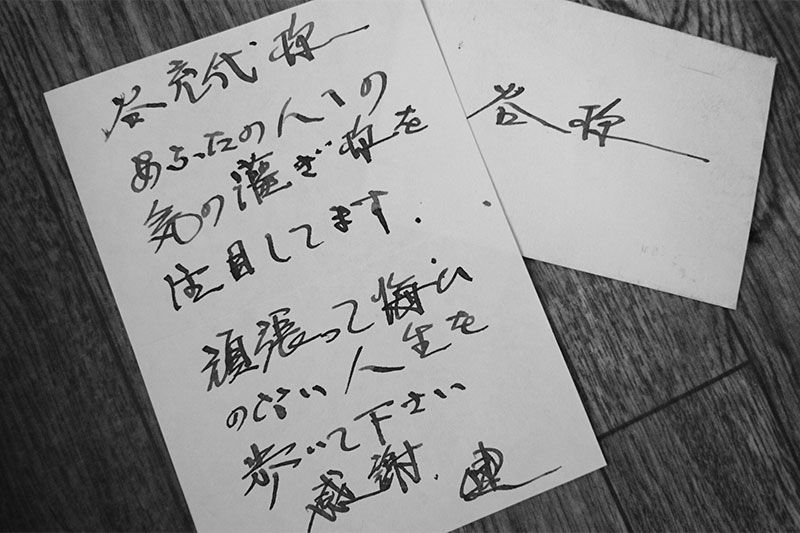 谷充代 様
あなたの人への
気の灌ぎ様を
注目してます.
頑張って悔い
のない人生を
歩いて下さい
感謝. 健
谷 様